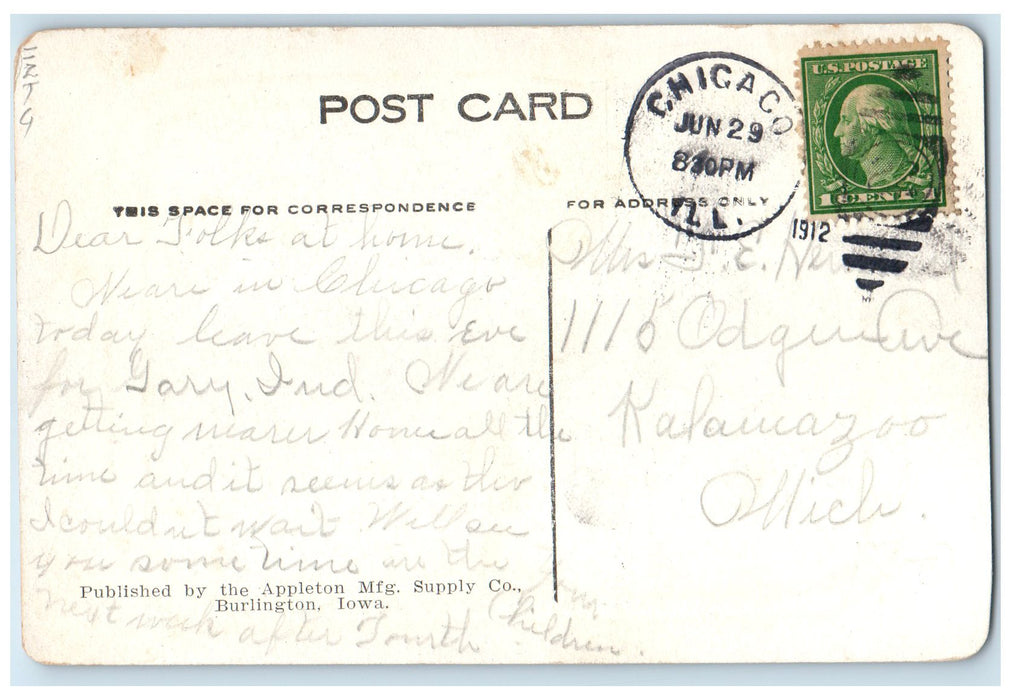 11259
POST CARD
CHICAGO
JUN 29
830PM
ILL.
1912
U.S. POSTAGE
1 CENT 1
THIS SPACE FOR CORRESPONDENCE
Dear Folks at home.
We are in Chicago
today leave this eve
for Gary, Ind. We are
getting nearer Home all the
time and it seems as tho
I couldn't wait Will see
you some time the
next week after Fourth
your
Children.
Published by the Appleton Mfg. Supply Co.,
Burlington, Iowa.
FOR ADDRESS ONLY
Mrs E.
1115 Ave
Kalamazoo
Mich.